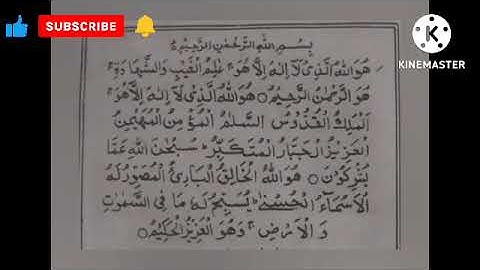 SUBSCRIBE
KINEMASTER
بِسْمِ اللهِ الرَّحْمٰنِ الرَّحِيْمِ
هُوَ اللهُ الَّذِيْ لَآ اِلٰهَ اِلَّا هُوَ ۚ عٰلِمُ الْغَيْبِ وَالشَّهَادَةِ ۚ
هُوَ الرَّحْمٰنُ الرَّحِيْمُ ○ هُوَ اللهُ الَّذِيْ لَآ اِلٰهَ اِلَّا هُوَ ۚ
اَلْمَلِكُ الْقُدُّوْسُ السَّلٰمُ الْمُؤْمِنُ الْمُهَيْمِنُ
الْعَزِيْزُ الْجَبَّارُ الْمُتَكَبِّرُ ؕ سُبْحٰنَ اللهِ عَمَّا
يُشْرِكُوْنَ ○ هُوَ اللهُ الْخَالِقُ الْبَارِئُ الْمُصَوِّرُ لَهُ
الْاَسْمَآءُ الْحُسْنٰى ؕ يُسَبِّحُ لَهٗ مَا فِي السَّمٰوٰتِ
وَالْاَرْضِ ۚ وَهُوَ الْعَزِيْزُ الْحَكِيْمُ ○